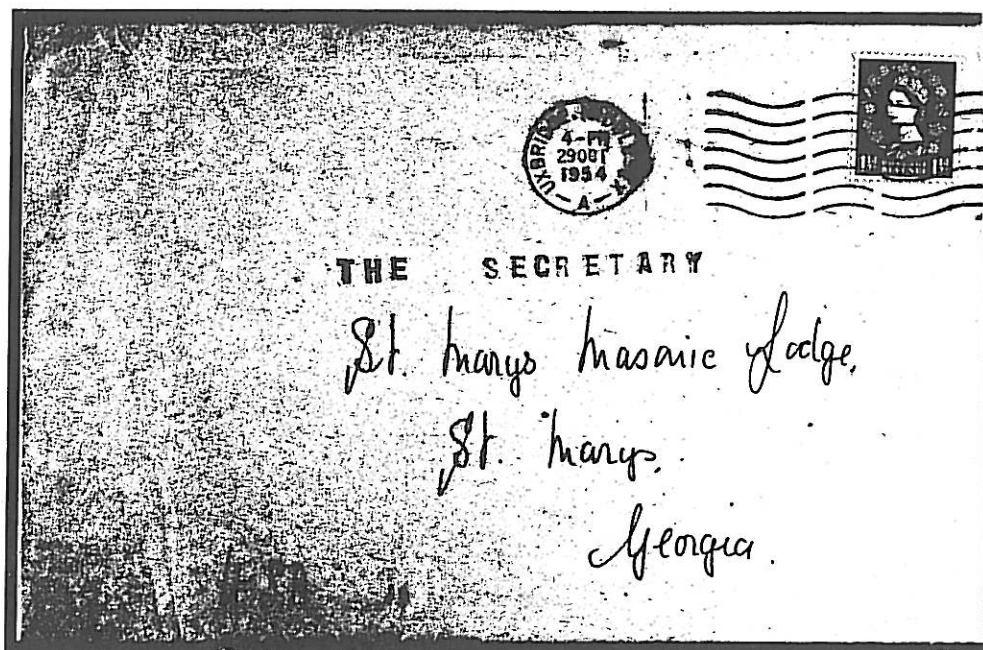 UXBRIDGE
4-PM
29 OCT
1954
A
THE SECRETARY
St. Marys Masonic Lodge,
St. Marys,
Georgia.